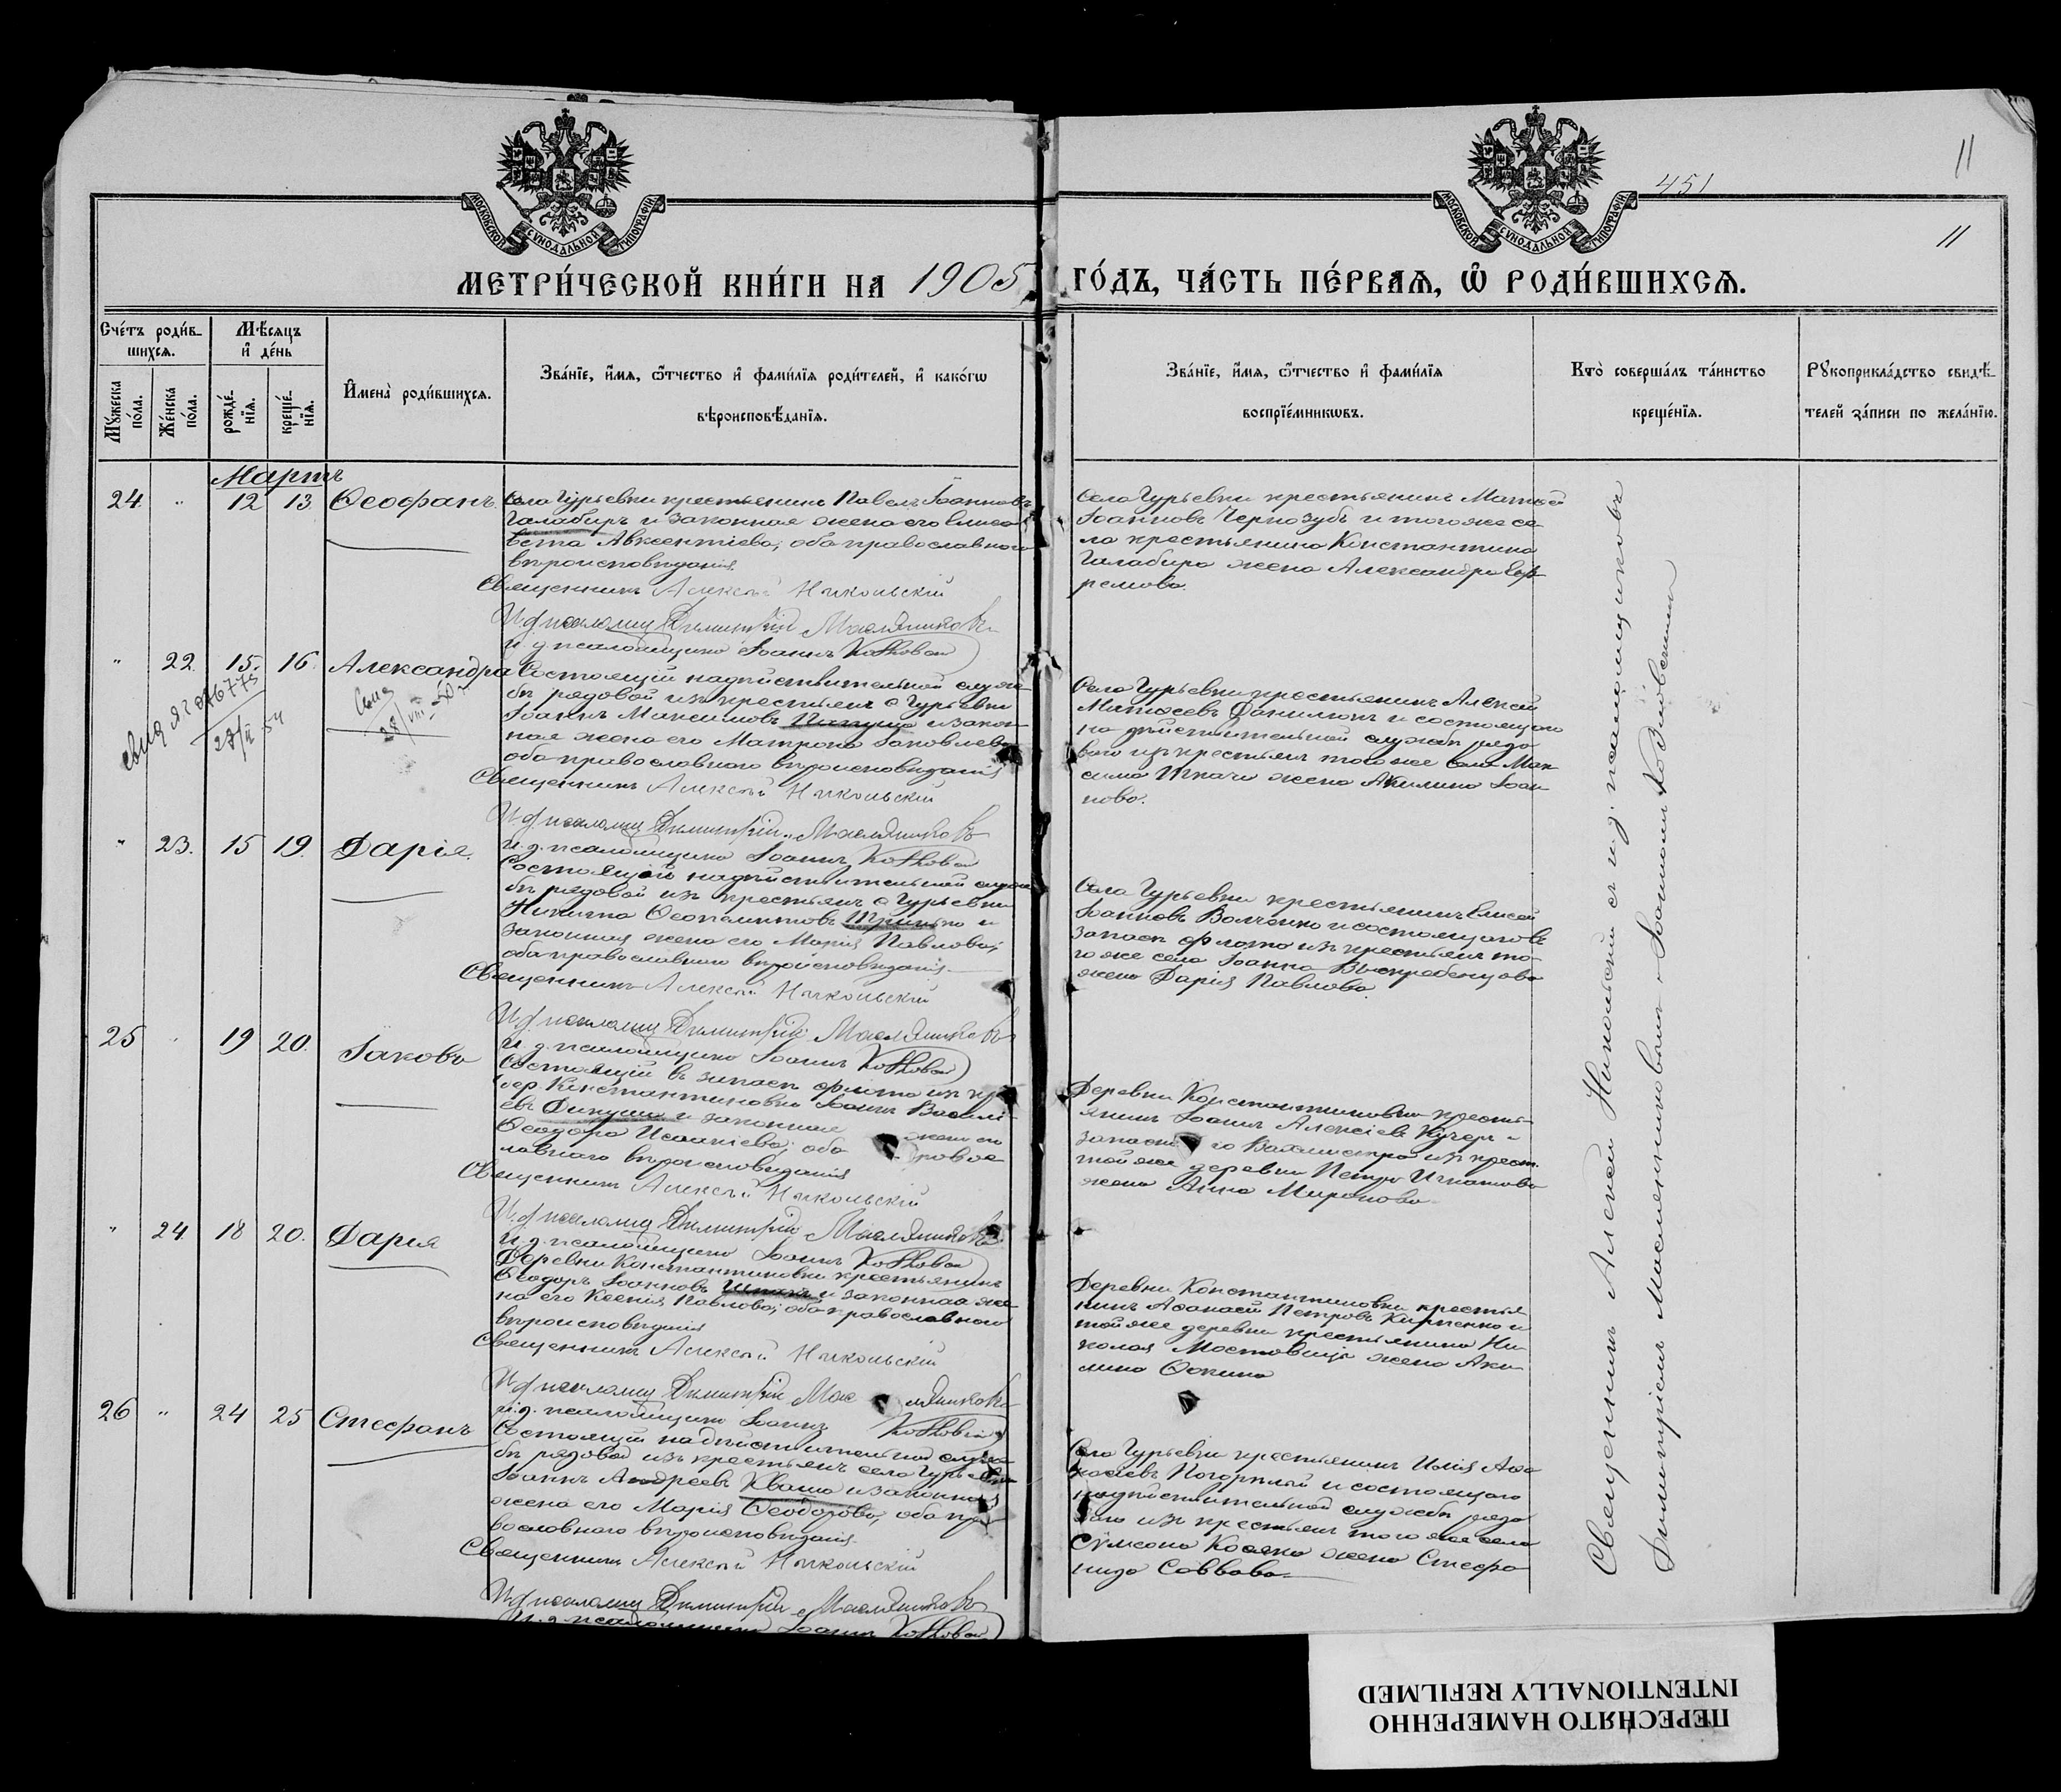 МОСКОВСКОЙ СѴНОДАЛЬНОЙ ТИПОГРАФІИ
МОСКОВСКОЙ СѴНОДАЛЬНОЙ ТИПОГРАФІИ
451
11
11
МЕТРИ́ЧЕСКОЙ КНИ́ГИ НА 1905 ГО́ДЪ, ЧА́СТЬ ПЕ́РВАЯ, Ѡ РОДИ́ВШИХСЯ.
Сче́тъ роди́в-
шихся.
Мѣсяцъ
и҆ де́нь
Мꙋ́жеска
по́ла.
Же́нска
по́ла.
рожде́-
нїя.
креще́-
нїя.
И҆мена̀ роди́вшихся.
Зва́нїе, и҆́мя, ѻ҆́тчество и҆ фами́лїя роди́телей, и҆ како́гѡ
вѣроисповѣ́данїя.
Зва́нїе, и҆́мя, ѻ҆́тчество и҆ фами́лїя
воспрїе́мникѡвъ.
Кто̀ соверша́лъ та́инство
креще́нїя.
Рꙋкоприкла́дство свидѣ́-
телей за́писи по жела́нїю.
Мартъ
24 " 12 13 Ѳеофанъ
Села Гурьевки крестьянинъ Павелъ Іоанновъ
Галабиръ и законная жена его Елиса
вета Авксентіева, оба православнаго
вѣроисповѣданія.
Священникъ Алексѣй Никольскій
И. д. псаломщ Димитрій Масляниковъ
и. д. псаломщика Іоаннъ
Села Гурьевки крестьянинъ Матѳей
Іоанновъ Чернозубъ и того же се-
ла крестьянина Константина
Галабира жена Александра Еф
ремова.
" 22. 15. 16. Александра
27/II 54
28/VIII
Состоящій на дѣйствительной служ-
бѣ рядовой изъ крестьянъ с Гурьевки
Іоаннъ Максимовъ и закон-
ная жена его Матрона Іаковлева
оба православнаго вѣроисповѣданія
Священникъ Алексѣй Никольскій
И. д. псаломщ Димитрій Масляниковъ
и. д. псаломщика Іоаннъ
Села Гурьевки крестьянинъ Алексій
Матѳеевъ Данилюкъ и состоящаго
на дѣйствительной службѣ рядо
ваго изъ крестьянъ того же села Мак
сима Ткача жена Акилина Іоан
нова.
" 23. 15 19. Дарія.
Состоящій на дѣйствительной служ
бѣ рядовой изъ крестьянъ с Гурьевки
Никита и
законная жена его Марія Павлова;
оба православнаго вѣроисповѣданія
Священникъ Алексѣй Никольскій
И. д. псаломщ Димитрій Масляниковъ
и. д. псаломщика Іоаннъ
Села Гурьевки крестьянинъ Елисей
Іоанновъ и состоящаго въ
запасѣ флота изъ крестьянъ то-
го же села Іоанна
жена Дарія Павлова.
25 " 19 20. Іаковъ
Состоящій въ запасѣ флота изъ кр
дер Константиновки Іоаннъ Василі
евъ и законная жена его
Ѳеодора Исаакіева; оба
лавнаго вѣроисповѣданія
Священникъ Алексѣй Никольскій
И. д. псаломщ Димитрій Масляниковъ
и. д. псаломщика Іоаннъ
Деревни Константиновки кресть-
янинъ Іоаннъ Алексіевъ Кучеръ и
изъ крест.
той же деревни Петра Игнатова
жена Анна Миронова
" 24. 18 20. Дарія
Деревни Константиновки крестьянинъ
Ѳеодоръ Іоанновъ и законная же-
на его Ксенія Павлова; оба православнаго
вѣроисповѣданія
Священникъ Алексѣй Никольскій
И. д. псаломщ Димитрій Масляниковъ
и. д. псаломщика Іоаннъ
Деревни Константиновки крестья
нинъ Аѳанасій Петровъ Кирпенко и
той же деревни крестьянина Ни-
колая жена Аки-
лина Ѳокина
26 " 24 25 Стефанъ
Состоящій на дѣйствительной служ
бѣ рядовой изъ крестьянъ села Гурьевки
Іоаннъ Андреевъ Кваша и законная
жена его Марія Ѳеодорова, оба пра
вославнаго вѣроисповѣданія.
Священникъ Алексѣй Никольскій
И. д. псаломщ Димитрій Масляниковъ
И. д. псаломщика Іоаннъ
Села Гурьевки крестьянинъ Илія Аѳа
насіевъ Погорѣлый и состоящаго
на дѣйствительной службѣ рядо
ваго изъ крестьянъ того же села
Сѵмеона жена Стефа
нида Саввова
Священникъ Алексѣй Никольскій съ и. д. псаломщиковъ
Димитріемъ Масленниковымъ и Іоанномъ
ПЕРЕСНЯТО НАМЕРЕННО
INTENTIONALLY REFILMED